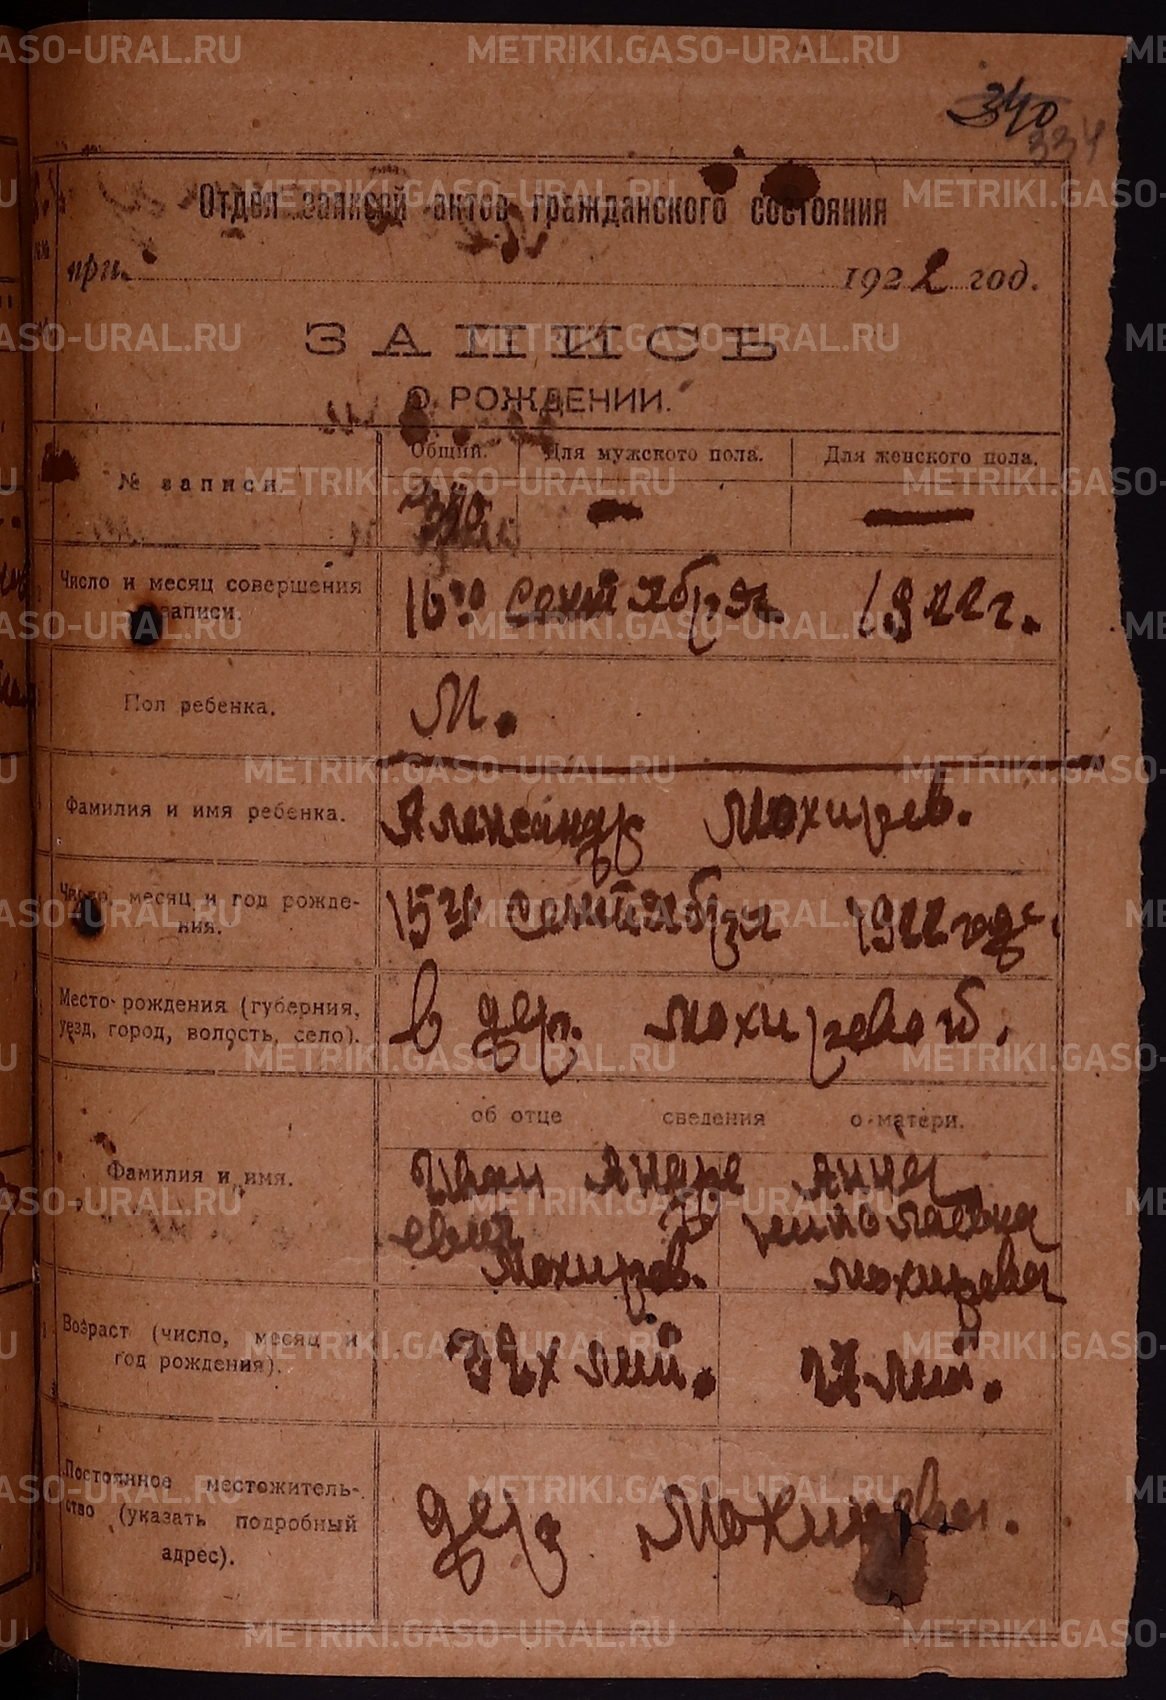 340
334
Отдел записей актов гражданского состояния
при 1922 год.
ЗАПИСЬ
О РОЖДЕНИИ.
№ записи.
Общий. Для мужского пола. Для женского пола.
340 — —
Число и месяц совершения
записи.
16го Сентября 1922 г.
Пол ребенка.
М.
Фамилия и имя ребенка.
Александр Мохирев.
Число, месяц и год рожде-
ния.
15го Сентября 1922 года
Место рождения (губерния,
уезд, город, волость, село).
в дер. Мохиревой.
об отце сведения о матери.
Фамилия и имя.
Иван Андре
евич
Мохирев.
Анна
Николаевна
Мохирева
Возраст (число, месяц и
год рождения).
32х лет.
27 лет.
Постоянное местожитель-
ство (указать подробный
адрес).
дер Мохирева.
METRIKI.GASO-URAL.RU